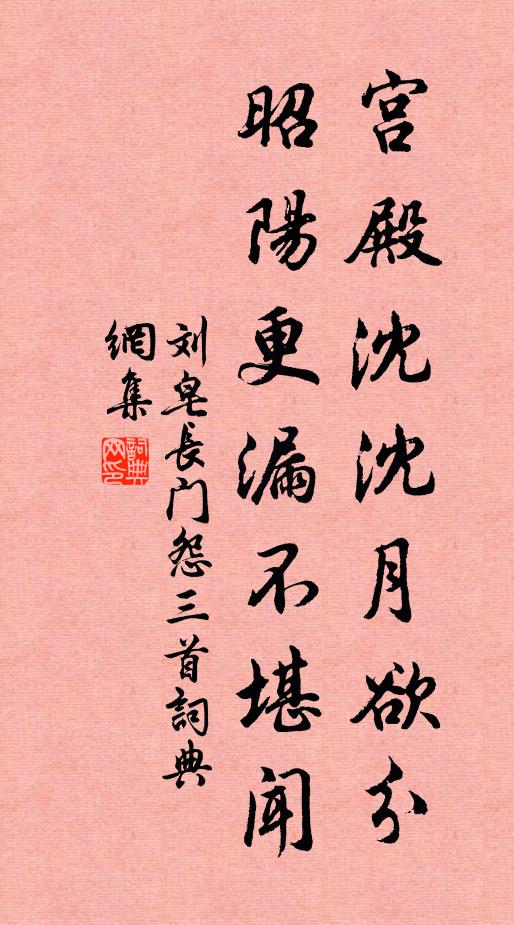 宫殿沈沈月欲分
昭陽更漏不堪聞
刘皂長门怨三首詞典
網集
詞典網印